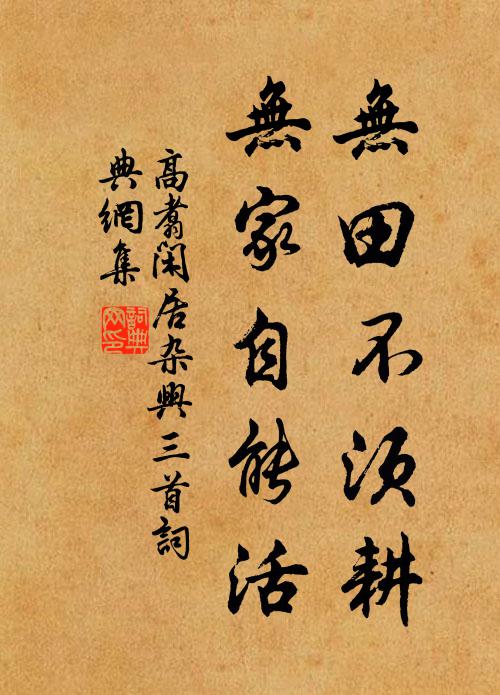 無田不須耕
無家自能活
高翥閑居杂興三首詞
典網集
詞典
网印